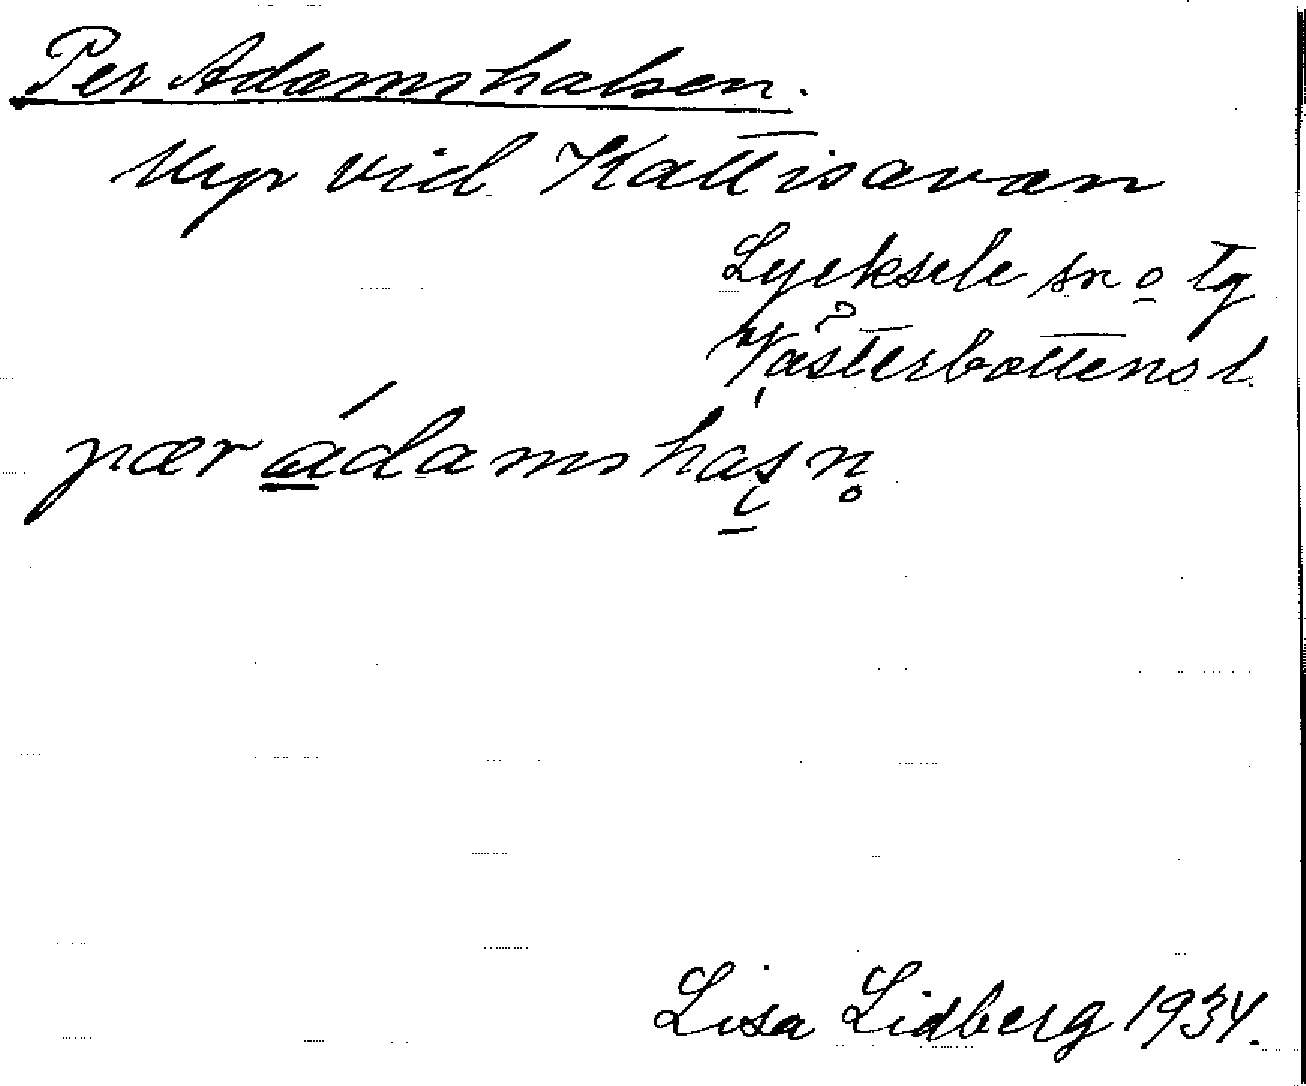 Per Adamshalsen.
Myr vid Kattisavan
Lycksele sn o tg
Västerbottens l.
pær ádamshaşn̥
Lisa Lidberg 1934.